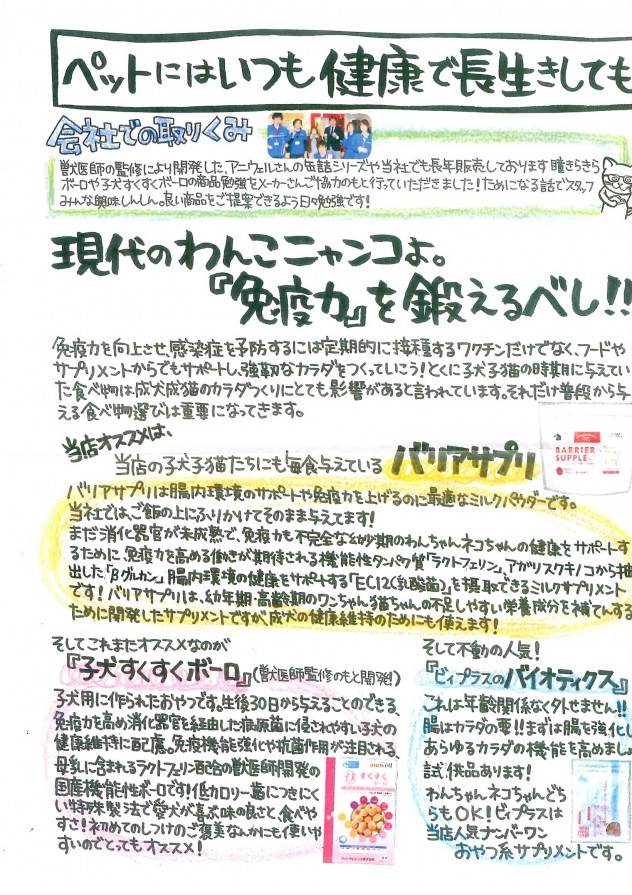 ペットにはいつも健康で長生きしても
会社での取りくみ
獣医師の監修により開発した、アニウェルさんの缶詰シリーズや当社でも長年販売しております瞳きらきら
ボーロや子犬すくすくボーロの商品勉強をメーカーさんご協力のもと行っていただきました！ためになる話でスタッフ
みんな興味しんしん。良い商品をご提案できるよう日々勉強です！
現代のわんこニャンコよ。
『免疫力』を鍛えるべし!!
免疫力を向上させ、感染症を予防するには定期的に接種するワクチンだけでなく、フードや
サプリメントからでもサポートし、強靭なカラダをつくっていこう！とくに子犬子猫の時期に与えてい
た食べ物は、成犬成猫のカラダつくりにとても影響があると言われています。それだけ普段から与
える食べ物選びは重要になってきます。
当店オススメは、
当店の子犬子猫たちにも毎食与えている バリアサプリ
BARRIER
SUPPLE
バリアサプリは腸内環境のサポートや免疫力を上げるのに最適なミルクパウダーです。
当社では、ご飯の上にふりかけてそのまま与えてます！
まだ消化器官が未成熟で、免疫力も不完全な幼少期のわんちゃんネコちゃんの健康をサポートす
るために、免疫力を高める働きが期待される機能性タンパク質「ラクトフェリン」、アガリスクキノコから抽
出した「βグルカン」腸内環境の健康をサポートする「EC12(乳酸菌)」を摂取できるミルクサプリメント
です！バリアサプリは、幼年期・高齢期のワンちゃん猫ちゃんの不足しやすい栄養成分を補てんする
ために開発したサプリメントですが、成犬の健康維持のためにも使えます！
そしてこれまたオススメなのが
『子犬すくすくボーロ』(獣医師監修のもと開発!)
子犬用に作られたおやつです。生後30日から与えることのできる、
免疫力を高め消化器官を経由した病原菌に侵されやすい子犬の
健康維持に配慮。免疫機能強化や抗菌作用が注目される、
母乳に含まれるラクトフェリン配合の獣医師開発の
国産機能性ボーロです！低カロリー歯につきにく
い特殊製法で愛犬が喜ぶ味の良さと、食べや
すさ！初めてのしつけのご褒美なんかにも使いや
すいのでとってもオススメ！
すくすく
そして不動の人気！
『ビィプラスのバイオティクス』
これは年齢関係なく外せません!!
腸はカラダの要!!まずは腸を強化し
あらゆるカラダの機能を高めましょ
試供品あります！
わんちゃんネコちゃんどち
らもOK！ビィプラスは
当店人気ナンバーワン
おやつ系サプリメントです。